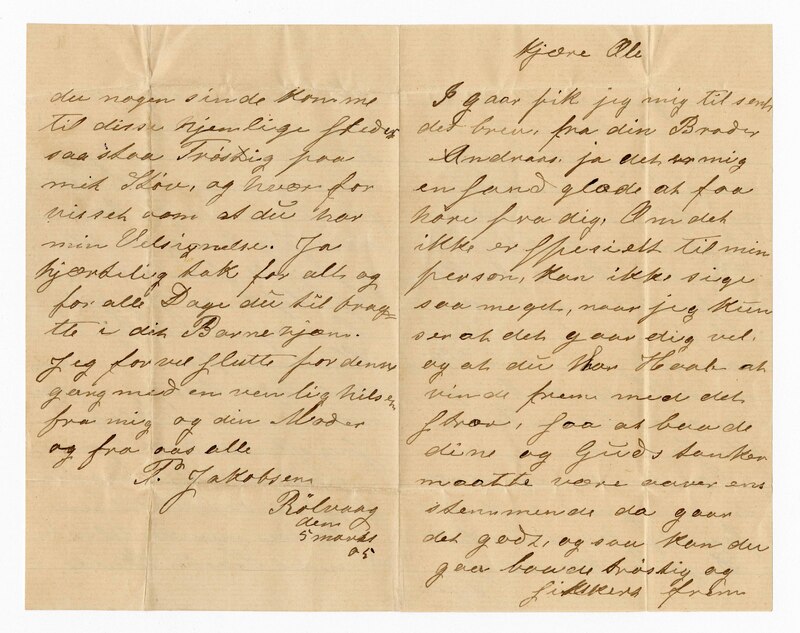 Kjære Ole
I gaar fik jeg mig til sent
det brev, fra din Broder
Andraas, ja det er mig
en sand glæde at faa
höre fra dig, Om det
ikke er spesielt til min
person, kan ikke sige
saa meget, naar jeg kun
ser at det gaar dig vel,
og at du har Haab at
vinde frem med det
stræv, saa at baade
dine og Guds tanker
maatte være aaver ens
stemmende da gaar
det godt, og saa kan du
gaa baade tröstig og
sikkert frem
du nogen sinde komme
til disse hjemlige steder
saa staa Tröstig paa
mit Stöv, og hvær for
visset om at du har
min Velsignelse. Ja
hjærtelig tak for alt og
for alle Dage du til brag=
te i dit Barne hjæm.
Jeg for vel slutte for denne
gang med en venlig hilsen
fra mig og din Moder
og fra oas alle
P. Jakobsen
Rölvaag
den
5 marts
05